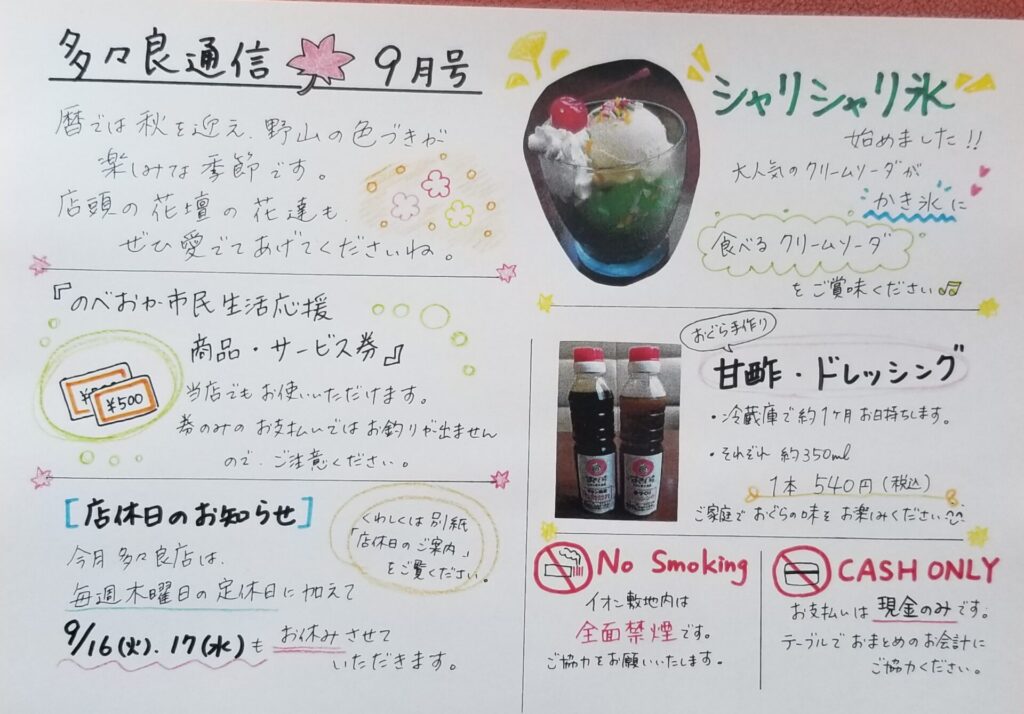 多々良通信 9月号
暦では秋を迎え、野山の色づきが
楽しみな季節です。
店頭の花壇の花達も、
ぜひ愛でてあげてくださいね。
『のべおか市民生活応援
商品・サービス券』
¥500
当店でもお使いいただけます。
券のみのお支払いではお釣りが出ません
ので、ご注意ください。
[店休日のお知らせ]
くわしくは別紙
「店休日のご案内」
をご覧ください。
今月多々良店は、
毎週木曜日の定休日に加えて
9/16(火).17(水)も お休みさせて
いただきます。
シャリシャリ氷
始めました!!
大人気のクリームソーダが
かき氷に
食べるクリームソーダ
をご賞味ください♫
おぐら手作り
甘酢・ドレッシング
・冷蔵庫で約1ヶ月お日持ちします。
・それぞれ 約350ml
1本 540円(税込)
ご家庭でおぐらの味をお楽しみください
No Smoking
イオン敷地内は
全面禁煙です。
ご協力をお願いいたします。
CASH ONLY
お支払いは現金のみです。
テーブルでおまとめのお会計に
ご協力ください。